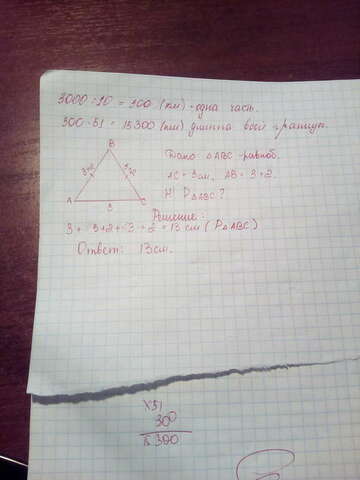 3000 : 10 = 300 (км) - одна часть.
300 · 51 = 15300 (км) длинна всей границы.
B
Дано △ABC - равноб.
3+2
3+2
AC = 3 см, AB = 3 + 2.
A
C
Н! P△ABC?
3
Решение:
3 + 3 + 2 + 3 + 2 = 13 см (P△ABC)
Ответ: 13 см.
×51
300
15300